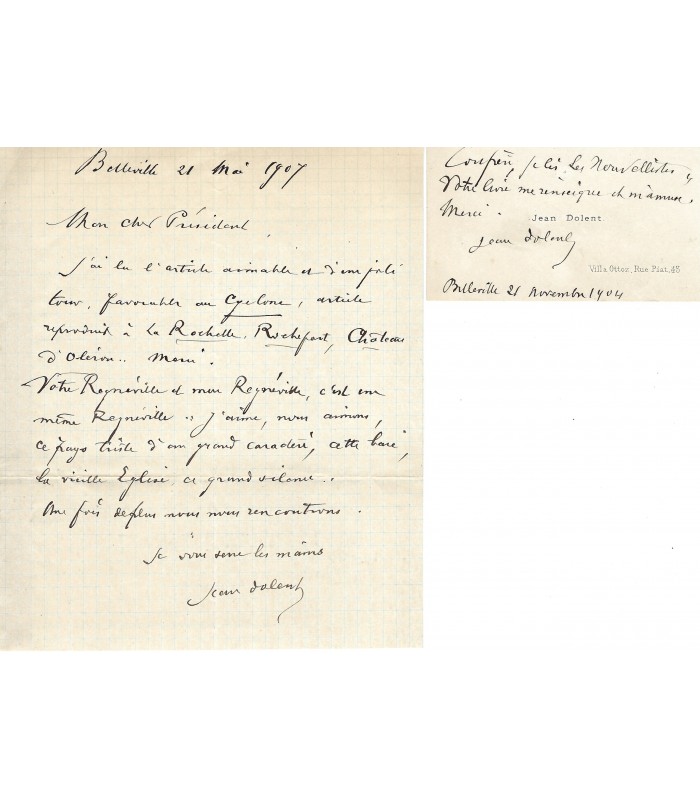 Belleville 21 Mai 1907
Mon cher Président,
J'ai lu l'article aimable et d'un joli
tour, favorable au Cyclone, article
reproduit à La Rochelle, Rochefort, Château
d'Oléron.. Merci.
Votre Regnéville et mon Regnéville, c'est un
même Regnéville .. j'aime, nous aimons,
ce pays triste d'un grand caractère, cette baie,
la vieille Eglise, ce grand silence..
Une fois de plus nous nous rencontrons.
Je vous serre les mains
Jean Dolent
Confrère, je lis Les Nouvellistes,
Votre livre me renseigne et m'amuse.
Merci.
Jean Dolent.
Jean Dolent
Villa Ottoz, Rue Piat, 43
Belleville 21 novembre 1904